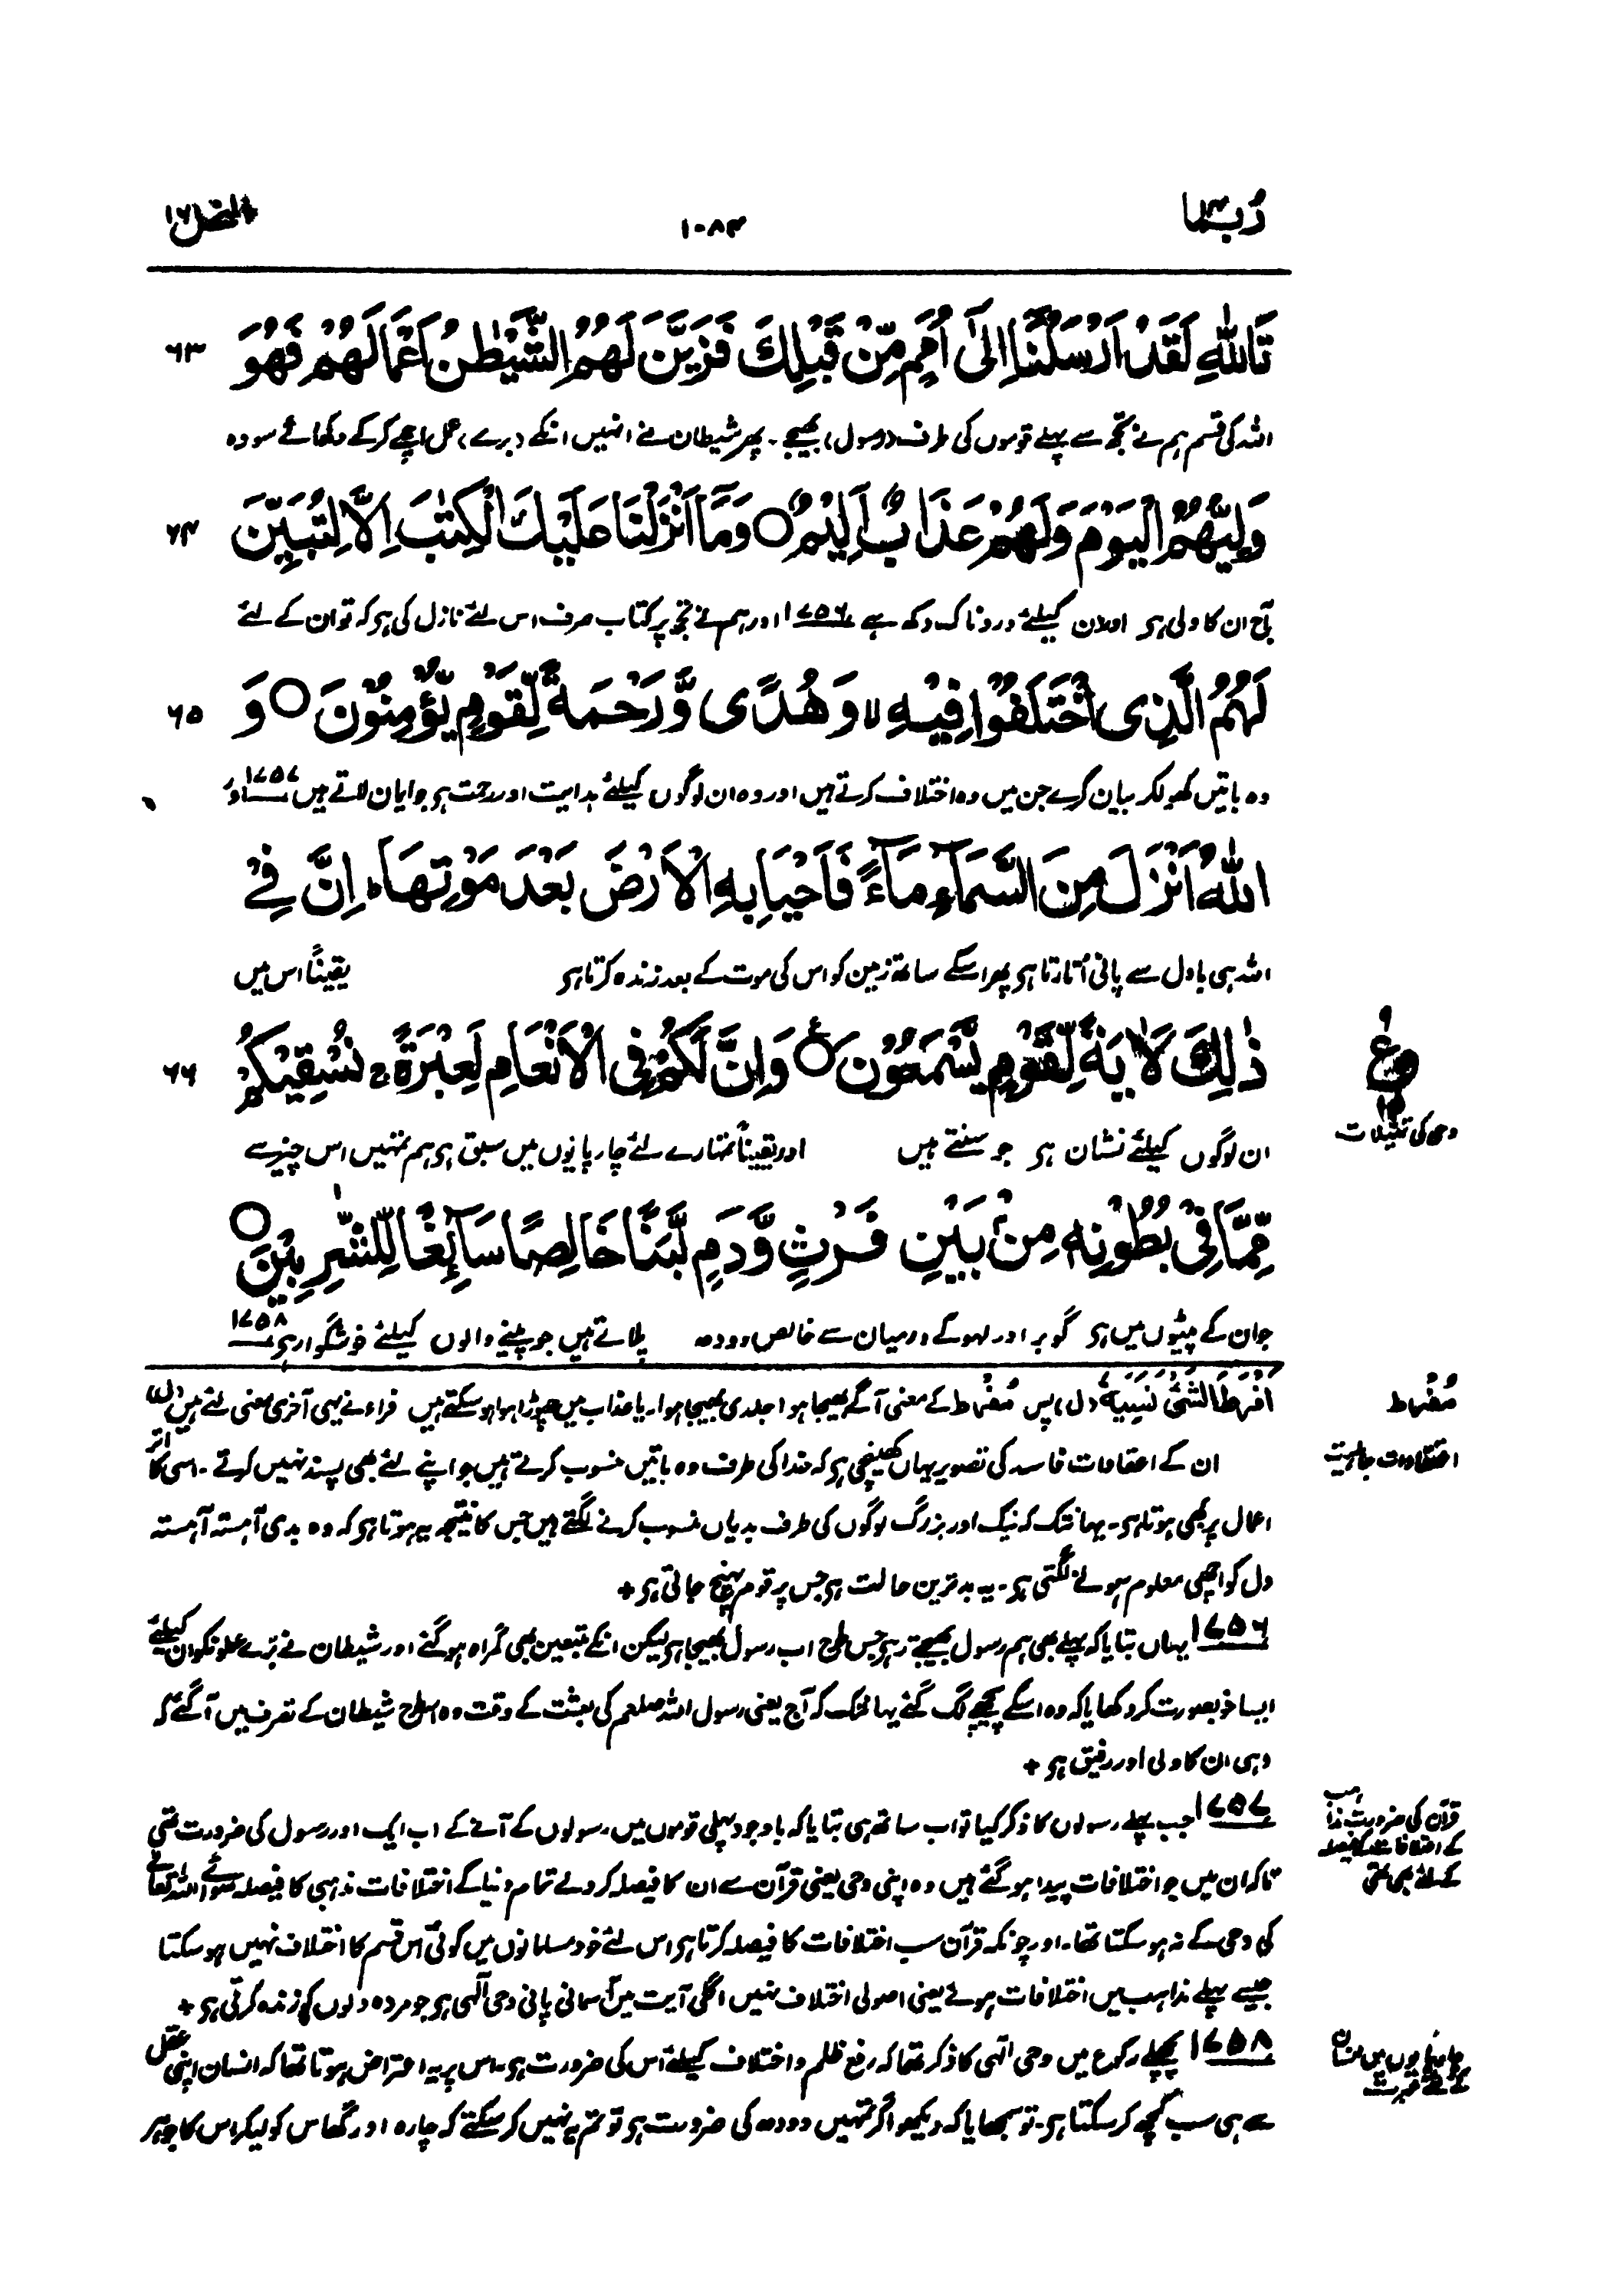 ربما ١٤
١٠٨٤
النحل ١٦
تَاللّٰهِ لَقَدْ اَرْسَلْنَاۤ اِلٰۤی اُمَمٍ مِّنْ قَبْلِكَ فَزَیَّنَ لَهُمُ الشَّیْطٰنُ اَعْمَالَهُمْ فَهُوَ ۶۳
اللہ کی قسم ہم نے تجھ سے پہلے قوموں کی طرف (رسول) بھیجے۔ پھر شیطان نے انہیں انکے (برے) عمل اچھے کرکے دکھائے سو وہ
وَلِیُّهُمُ الْیَوْمَ وَلَهُمْ عَذَابٌ اَلِیْمٌ○ وَمَاۤ اَنْزَلْنَا عَلَیْكَ الْكِتٰبَ اِلَّا لِتُبَیِّنَ ۶۴
آج ان کا ولی ہی اور ان کیلئے دردناک دکھ ہے ۱۷۵۶ اور ہم نے تجھ پر کتاب صرف اس لئے نازل کی ہی کہ تو ان کے لئے
لَهُمُ الَّذِی اخْتَلَفُوْا فِیْهِ ۙ وَهُدًی وَّرَحْمَةً لِّقَوْمٍ یُّؤْمِنُوْنَ○ وَ ۶۵
وہ باتیں کھولکر بیان کرے جن میں وہ اختلاف کرتے ہیں اور وہ ان لوگوں کیلئے ہدایت اور رحمت ہی جو ایمان لاتے ہیں ۱۷۵۷ اور
اللّٰهُ اَنْزَلَ مِنَ السَّمَآءِ مَآءً فَاَحْیَا بِهِ الْاَرْضَ بَعْدَ مَوْتِهَا ؕ اِنَّ فِیْ
اللہ ہی بادل سے پانی اُتارتا ہی پھر اسکے ساتھ زمین کو اس کی موت کے بعد زندہ کرتا ہی یقیناً اس میں
ذٰلِكَ لَاٰیَةً لِّقَوْمٍ یَّسْمَعُوْنَ○ وَاِنَّ لَكُمْ فِی الْاَنْعَامِ لَعِبْرَةً ؕ نُسْقِیْكُمْ ۶۶
وحی کی تمثیلات
ان لوگوں کیلئے نشان ہی جو سنتے ہیں اور یقیناً تمہارے لئے چارپایوں میں سبق ہی ہم تمہیں اس چیز سے
مِّمَّا فِیْ بُطُوْنِهٖ مِنْۢ بَیْنِ فَرْثٍ وَّدَمٍ لَّبَنًا خَالِصًا سَآئِغًا لِّلشّٰرِبِیْنَ○
جو ان کے پیٹوں میں ہی گوبر اور لہو کے درمیان سے خالص دودھ پلاتے ہیں جو پینے والوں کیلئے خوشگوار ہی ۱۷۵۸
مُفْرَط
اَفْرَطَ الشَّیْءَ نَسِیَهٗ (ل) پس مُفْرَط کے معنی آگے بھیجا ہوا جلدی بھیجا ہوا۔ یا عذاب میں چھوڑا ہوا ہو سکتے ہیں فراء نے یہی آخری معنی لئے ہیں (ل)
اعتقادات جاہلیت
ان کے اعتقادات فاسدہ کی تصویر یہاں کھینچی ہی کہ خدا کی طرف وہ باتیں منسوب کرتے ہیں جو اپنے لئے بھی پسند نہیں کرتے۔ اسی کا اثر
اعمال پر بھی ہوتا ہی۔ یہانتک کہ نیک اور بزرگ لوگوں کی طرف بدیاں منسوب کرنے لگتے ہیں جس کا نتیجہ یہ ہوتا ہی کہ وہ بدی آہستہ آہستہ
دل کو اچھی معلوم ہونے لگتی ہی۔ یہ بدترین حالت ہی جس پر قوم پہنچ جاتی ہی +
۱۷۵۶ یہاں بتایا کہ پہلے بھی ہم رسول بھیجتے رہے جس طرح اب رسول بھیجا ہی لیکن انکے متبعین بھی گمراہ ہوگئے اور شیطان نے بُرے عملونکو ان کیلئے
ایسا خوبصورت کر دکھایا کہ وہ اسکے پیچھے لگ گئے یہانتک کہ آج یعنی رسول اللہ صلعم کی بعثت کے وقت وہ اسطرح شیطان کے تصرف میں آگئے کہ
وہی ان کا ولی اور رفیق ہی +
قرآن کی ضرورت مذاہب
کے اختلافات کے فیصلہ
کے لئے بھی تھی
۱۷۵۷ جب پہلے رسولوں کا ذکر کیا تو اب ساتھ ہی بتایا کہ باوجود پہلی قوموں میں رسولوں کے آنے کے اب ایک اور رسول کی ضرورت تھی
تاکہ ان میں جو اختلافات پیدا ہوگئے ہیں وہ اپنی وحی یعنی قرآن سے ان کا فیصلہ کردے تمام دنیا کے اختلافات مذہبی کا فیصلہ سوائے اللہ تعالےٰ
کی وحی کے نہ ہو سکتا تھا۔ اور چونکہ قرآن سب اختلافات کا فیصلہ کرتا ہی اس لئے خود مسلمانوں میں کوئی اس قسم کا اختلاف نہیں ہو سکتا
جیسے پہلے مذاہب میں اختلافات ہوئے یعنی اصولی اختلاف نہیں اگلی آیت میں آسمانی پانی وحی الٰہی ہی جو مردہ دلوں کو زندہ کرتی ہی +
چارپایوں میں انسان
کے لئے عبرت
۱۷۵۸ پچھلے رکوع میں وحی الٰہی کا ذکر تھا کہ رفع ظلم و اختلاف کیلئے اس کی ضرورت ہی۔ اس پر یہ اعتراض ہوتا تھا کہ انسان اپنی عقل
سے ہی سب کچھ کر سکتا ہی۔ تو سمجھایا کہ دیکھو اگر تمہیں دودھ کی ضرورت ہی تو تم یہ نہیں کر سکتے کہ چارہ اور گھاس کو لیکر اس کا جوہر